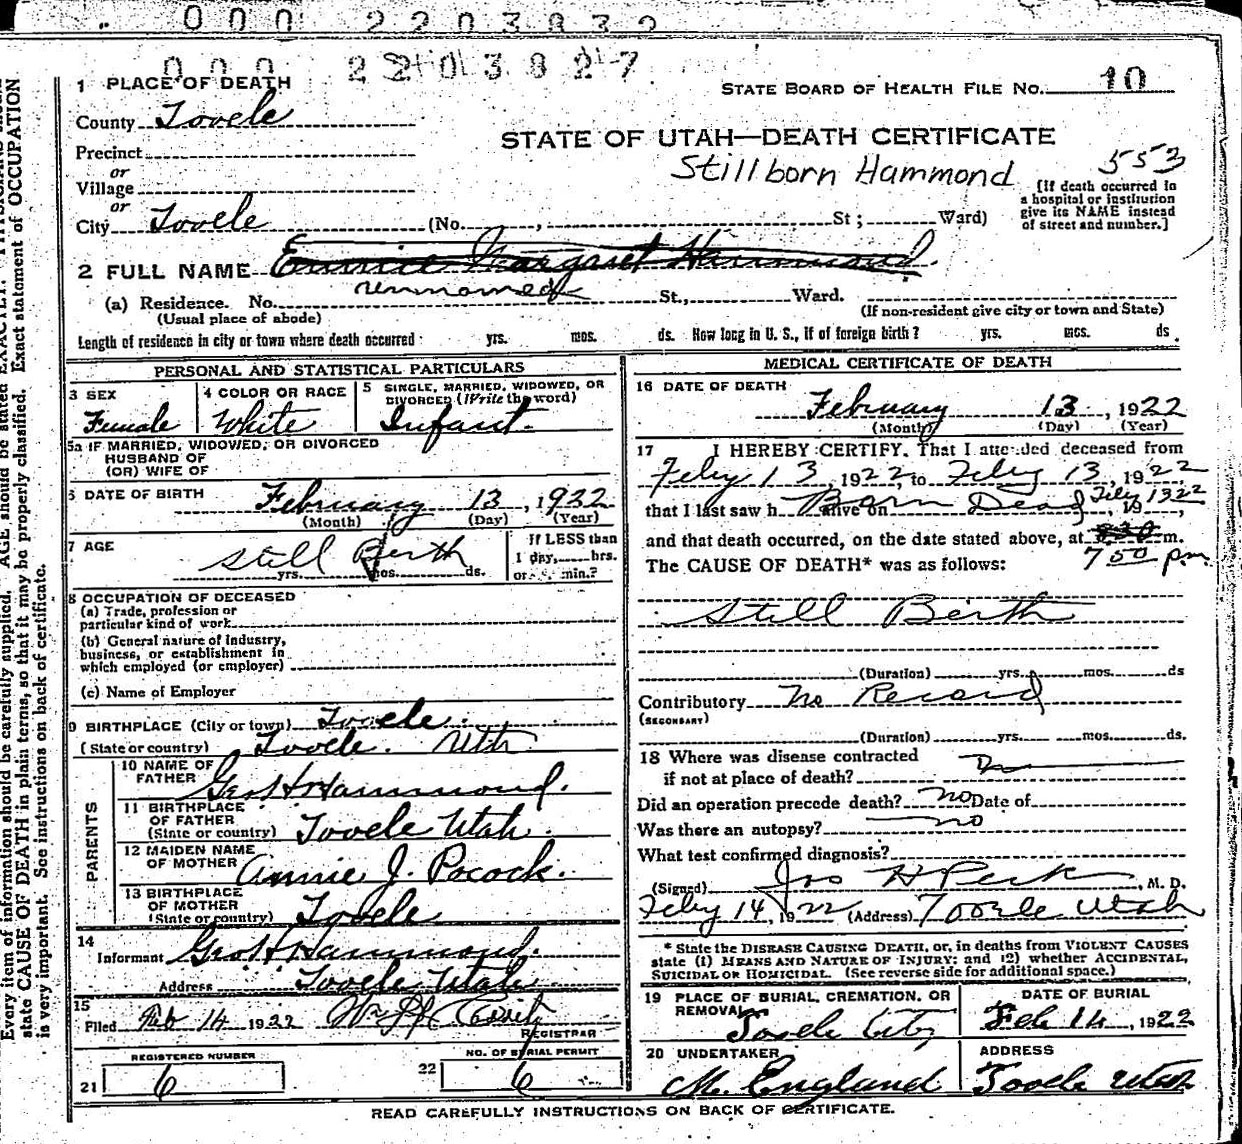 0 0 0 2 2 0 3 8 3 2
0 0 0 2 2 0 3 8 2 7
1 PLACE OF DEATH
STATE BOARD OF HEALTH FILE No. 10
County Tooele
STATE OF UTAH—DEATH CERTIFICATE
Precinct
Stillborn Hammond 553
or
Village
or
City Tooele (No. , St ; Ward)
[If death occurred in
a hospital or institution
give its NAME instead
of street and number.]
2 FULL NAME Emmie Margaret Hammond.
unnamed
(a) Residence. No. St., Ward.
(Usual place of abode) (If non-resident give city or town and State)
Length of residence in city or town where death occurred: yrs. mos. ds. How long in U. S., if of foreign birth? yrs. mos. ds.
PERSONAL AND STATISTICAL PARTICULARS
3 SEX Female
4 COLOR OR RACE White
5 SINGLE, MARRIED, WIDOWED, OR
DIVORCED (Write the word)
Infant.
5a IF MARRIED, WIDOWED, OR DIVORCED
HUSBAND OF
(OR) WIFE OF
6 DATE OF BIRTH February 13, 1932
(Month) (Day) (Year)
7 AGE Still Berth
yrs. mos. ds.
If LESS than
1 day, hrs.
or min.?
8 OCCUPATION OF DECEASED
(a) Trade, profession or
particular kind of work
(b) General nature of Industry,
business, or establishment in
which employed (or employer)
(c) Name of Employer
9 BIRTHPLACE (City or town) Tooele.
(State or country) Tooele. Utah
PARENTS
10 NAME OF
FATHER Geo H Hammond.
11 BIRTHPLACE
OF FATHER
(State or country) Tooele Utah.
12 MAIDEN NAME
OF MOTHER Annie J. Pocock.
13 BIRTHPLACE
OF MOTHER
(State or country) Tooele
14
Informant Geo H Hammond.
Address Tooele Utah
15
Filed Feb 14 1922
REGISTRAR
REGISTERED NUMBER
21 6
NO. OF BURIAL PERMIT
22 6
MEDICAL CERTIFICATE OF DEATH
16 DATE OF DEATH
February 13, 1922
(Month) (Day) (Year)
17 I HEREBY CERTIFY, That I attended deceased from
Feby 13, 1922, to Feby 13, 1922
that I last saw h alive on Born Dead Feby 1322, 19 ,
and that death occurred, on the date stated above, at 830 m.
7 50 pm
The CAUSE OF DEATH* was as follows:
Still Berth
(Duration) yrs. mos. ds
Contributory No Record
(SECONDARY)
(Duration) yrs. mos. ds.
18 Where was disease contracted
if not at place of death?
Did an operation precede death? no Date of
Was there an autopsy? no
What test confirmed diagnosis?
(Signed) Jno H Peck, M. D.
Feby 14, 1922 (Address) Tooele Utah
* State the DISEASE CAUSING DEATH, or, in deaths from VIOLENT CAUSES
state (1) MEANS AND NATURE OF INJURY; and (2) whether ACCIDENTAL,
SUICIDAL OR HOMICIDAL. (See reverse side for additional space.)
19 PLACE OF BURIAL, CREMATION, OR
REMOVAL
Tooele City
DATE OF BURIAL
Feb 14, 1922
20 UNDERTAKER
M. England
ADDRESS
Tooele Utah
READ CAREFULLY INSTRUCTIONS ON BACK OF CERTIFICATE.
Every item of information should be carefully supplied. AGE should be stated EXACTLY.
state CAUSE OF DEATH in plain terms, so that it may be properly classified. Exact statement of OCCUPATION
is very important. See instructions on back of certificate.